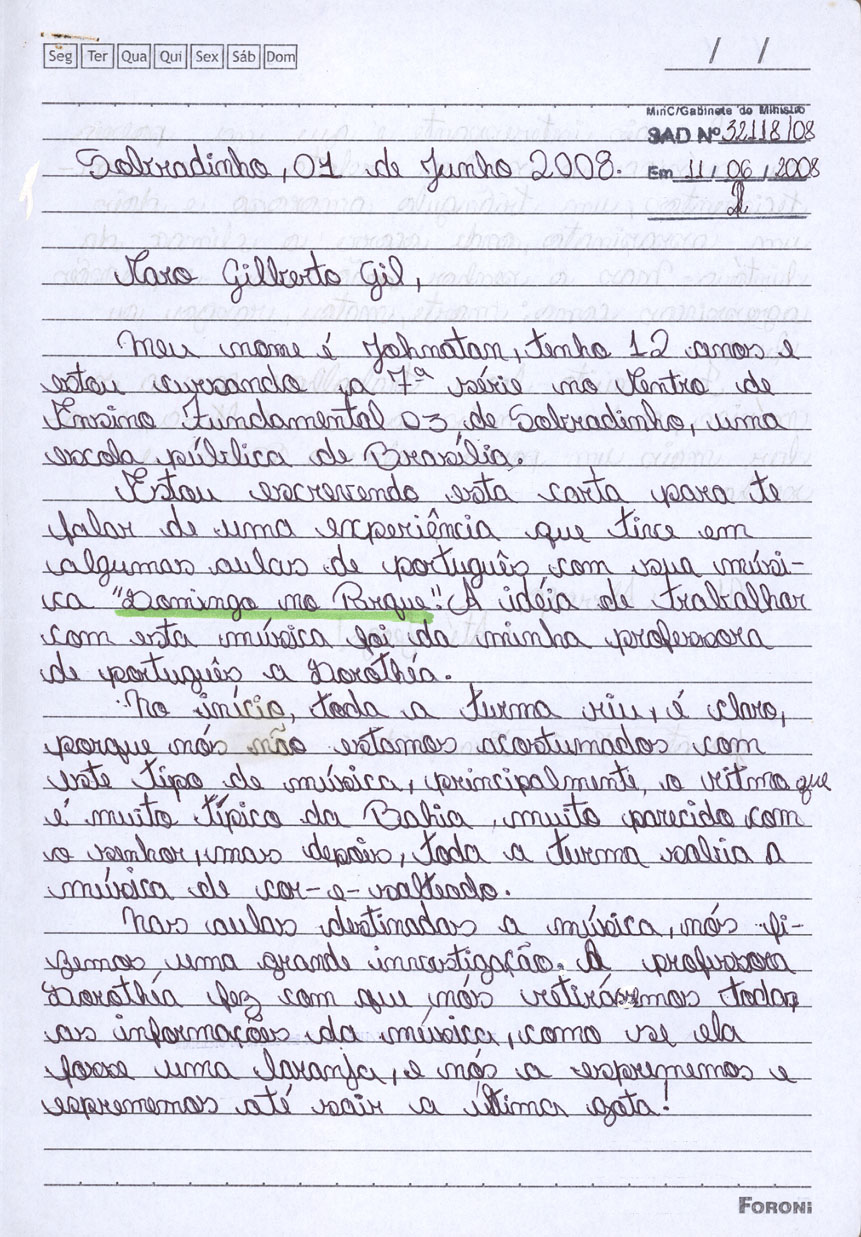 Seg Ter Qua Qui Sex Sáb Dom
/ /
MinC/Gabinete do Ministro
SAD Nº 32118/08
Em 11/06/2008
Sobradinho, 01 de Junho 2008.
Caro Gilberto Gil,
Meu nome é Johnatan, tenho 12 anos e
estou cursando a 7ª série no Centro de
Ensino Fundamental 03 de Sobradinho, uma
escola pública de Brasília.
Estou escrevendo esta carta para te
falar de uma experiência que tive em
algumas aulas de português com sua músi-
ca "Domingo no Prque". A idéia de trabalhar
com esta música foi da minha professora
de português a Dorothía.
No início, toda a turma riu, é claro,
porque nós não estamos acostumados com
este tipo de música, principalmente, o ritmo que
é muito típico da Bahia, muito parecido com
o senhor, mas depois, toda a turma sabia a
música de cor-e-salteado.
Nas aulas destinadas a música, nós fi-
zemos uma grande investigação. A professora
Dorothía fez com que nós retirássemos todas
as informações da música, como se ela
fosse uma laranja, e nós a esprememos e
esprememos até sair a última gota!
FORONI